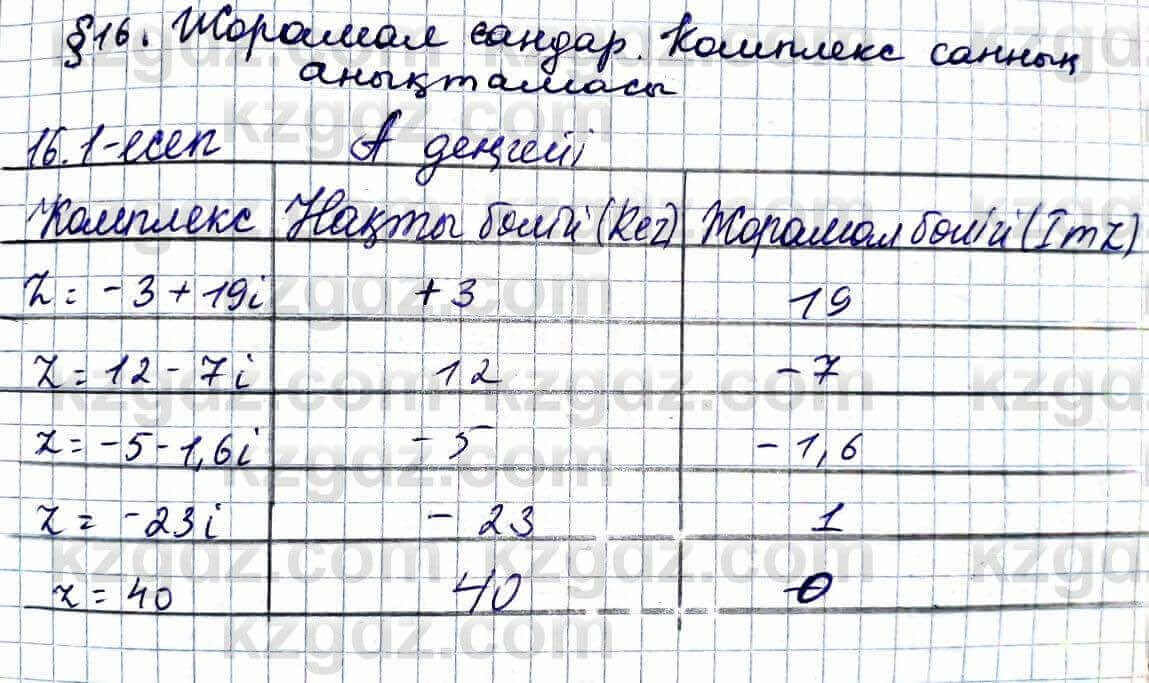 §16. Жорамал сандар. Комплекс санның
анықтамасы
16.1-есеп А деңгейі
Комплекс Нақты бөлігі (Rez) Жорамал бөлігі (Imz)
z = -3 + 19i +3 19
z = 12 - 7i 12 -7
z = -5 - 1,6i -5 -1,6
z = -23i - 23 1
z = 40 40 -0
kzgdz.com